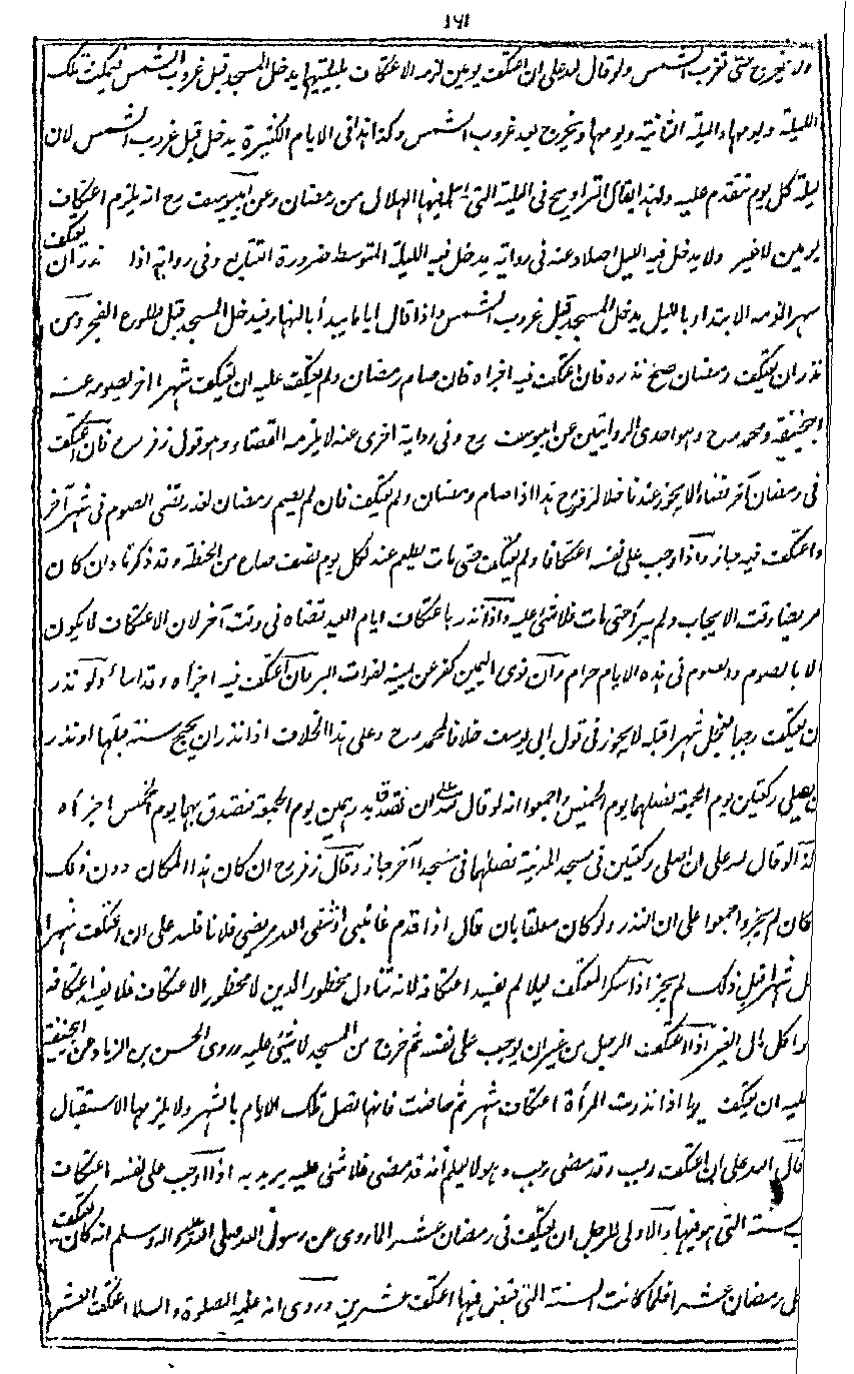 ۱۶۱
ولا يخرج حتى تغرب الشمس ولو قال لله على ان اعتكف يومين لزمه الاعتكاف بليلتيهما يدخل المسجد قبل غروب الشمس فيمكث تلك
الليلة ويومها والليلة الثانية ويومها ويخرج بعد غروب الشمس وكذا هذا فى الايام الكثيرة يدخل قبل غروب الشمس لان
ليلة كل يوم تتقدم عليه ولهذا يقال التراويح فى الليلة التى اهل فيها الهلال من رمضان وعن ابيوسف رح انه يلزم اعتكاف
يومين لا غير ولا يدخل فيه الليل اصلا وعنه فى رواية يدخل فيه الليلة المتوسط ضرورة التتابع وفى رواية اذا نذر ان يعتكف
شهرا لزمه الابتداء بالليل يدخل المسجد قبل غروب الشمس واذا قال اياما يبدأ بالنهار فيدخل المسجد قبل طلوع الفجر ومن
نذر ان يعتكف رمضان صح نذره فان اعتكف فيه اجزاه فان صام رمضان ولم يعتكف عليه ان يعتكف شهرا اخر بصومه عند
ابيحنيفة ومحمد رح وهو احدى الروايتين عن ابيوسف رح وفى رواية اخرى عنه لا يلزمه القضاء وهو قول زفر رح فان اعتكف
فى رمضان آخر قضاء لا يجوز عندنا خلافا لزفر رح هذا اذا صام رمضان ولم يعتكف فان لم يصم رمضان لعذر يقضى الصوم فى شهر آخر
واعتكف فيه جاز واذا وجب على نفسه اعتكافا ولم يعتكف حتى مات يطعم عنه لكل يوم نصف صاع من الحنطة وقد ذكرنا وان كان
مريضا وقت الايجاب ولم يبرأ حتى مات فلا شئ عليه واذا نذر باعتكاف ايام العيد قضاه فى وقت آخر لان الاعتكاف لا يكون
الا بالصوم والصوم فى هذه الايام حرام وان نوى اليمين كفر عن يمينه لفوات البر فان اعتكف فيه اجزأه وقد اساء ولو نذر
ان يعتكف رجبا فعجل شهرا قبله لا يجوز فى قول ابى يوسف خلافا لمحمد رح وعلى هذا الخلاف اذا نذر ان يحج سنة قبلها او نذر
ان يصلى ركعتين يوم الجمعة فصلهما يوم الخميس واجمعوا انه لو قال لله على ان تصدق بدرهمين يوم الجمعة فتصدق بهما يوم الخميس اجزأه
كذا لو قال لله على ان اصلى ركعتين فى مسجد المدينة فصلهما فى مسجد آخر جاز وقال زفر رح ان كان هذا المكان دون ذلك
المكان لم يجز واجمعوا على ان النذر ولو كان معلقا بان قال اذا قدم غائبى او شفى الله مريضى فلانا فلله على ان اعتكف شهرا
قبل ذلك لم يجز اذا سكر المعتكف ليلا لم يفسد اعتكافه لانه تناول محظور الدين لا محظور الاعتكاف فلا يفسد اعتكافه
كما لو اكل مال الغير اذا اعتكف الرجل من غير ان يوجب على نفسه ثم خرج من المسجد لا شئ عليه وروى الحسن بن الزياد عن ابيحنيفة
عليه ان يعتكف يوما اذا نذرت المرأة اعتكاف شهر ثم حاضت فانها تصل تلك الايام بالشهر ولا يلزمها الاستقبال
قال لله على ان اعتكف رجب وقد مضى رجب وهو لا يعلم انه قد مضى فلا شئ عليه يريد به اذا اوجب على نفسه اعتكاف
رجب سنة التى هو فيها والاولى للرجل ان يعتكف فى رمضان عشرا لما روى عن رسول الله صلى الله عليه واله وسلم انه كان يعتكف
كل رمضان عشرا فلما كانت السنة التى قبض فيها اعتكف عشرين وروى انه عليه الصلوة والسلام اعتكف العشر